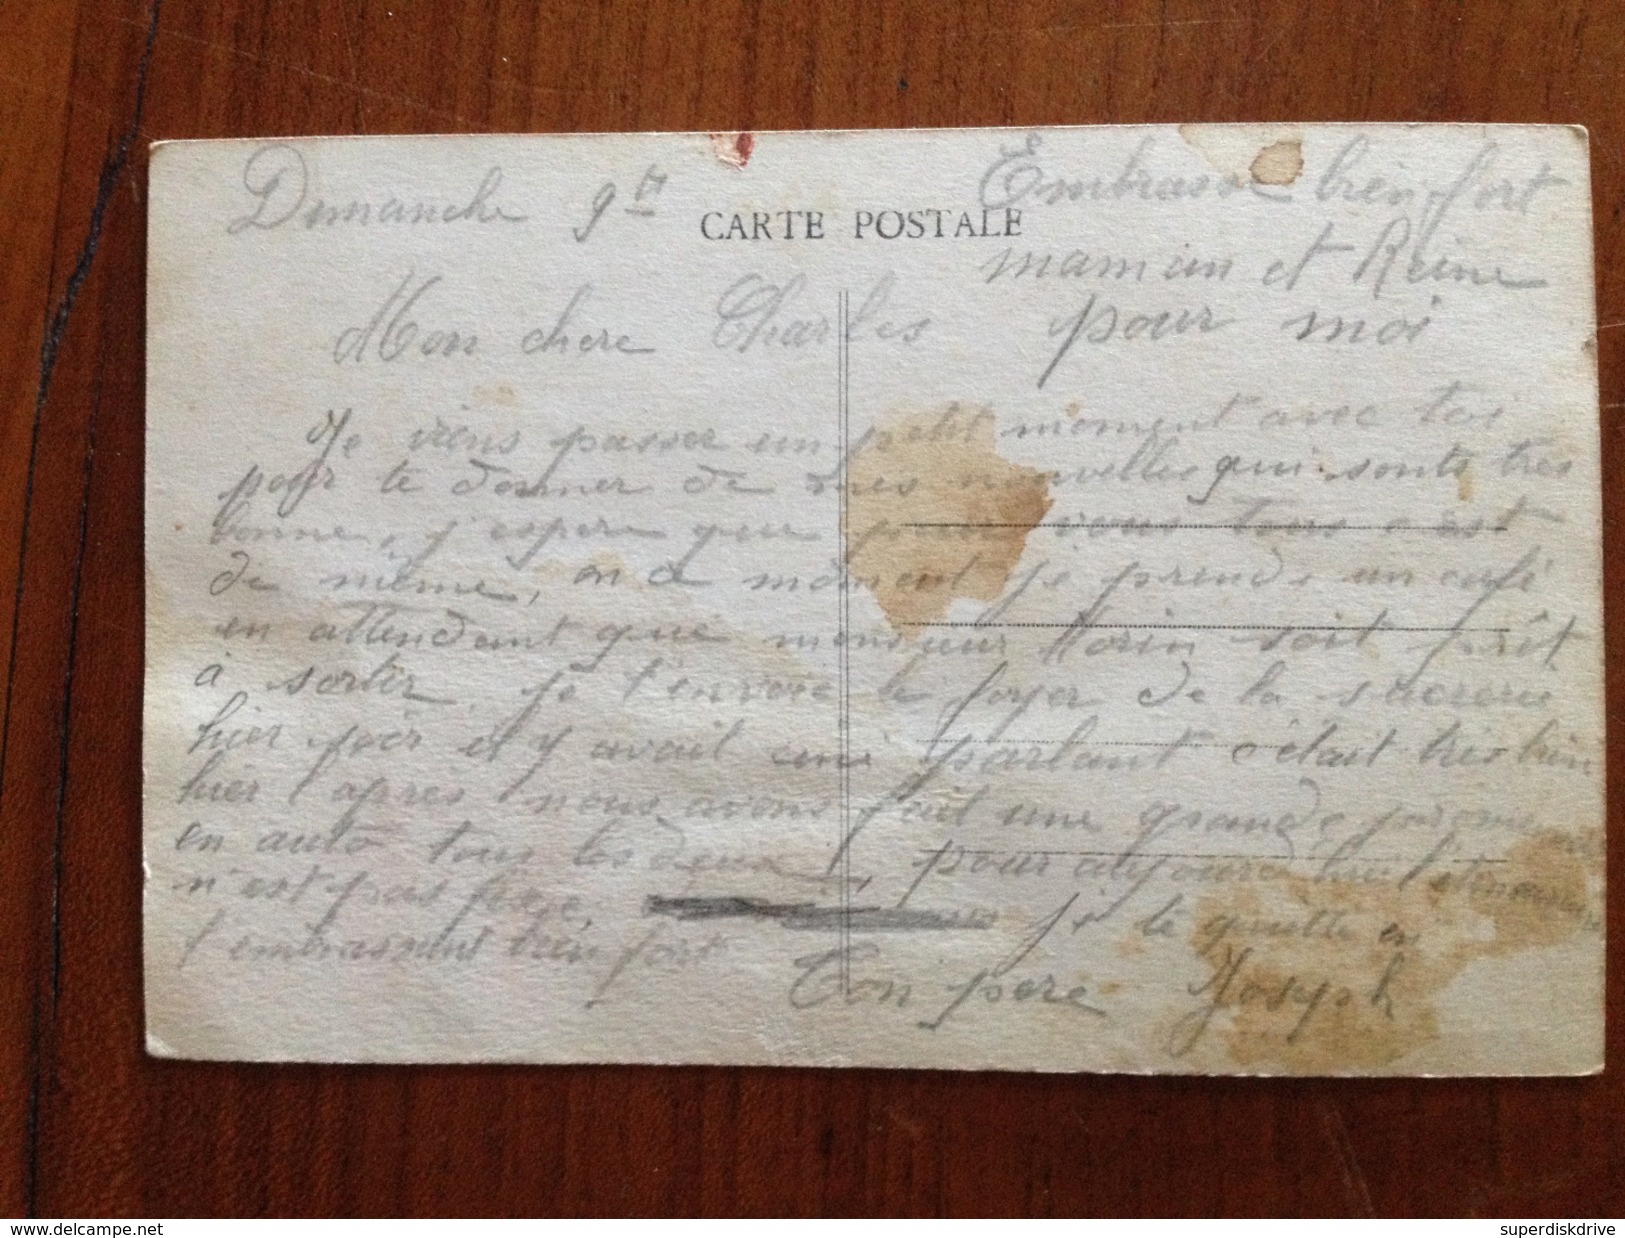 Dimanche 9
CARTE POSTALE
Embrasse bien fort
maman et Reine
pour moi
Mon chere Charles
Je viens passer un petit moment avec toi
pour te donner de mes nouvelles qui sonts tres
bonne, j'espere que pour vous tous c'est
de même, on ce moment je prends un café
en attendant que monsieur Morin soit prêt
à sortir, je t'envoie le foyer de la sucrerie
hier soir il y avait ciné parlant c'était très bien
hier l'après nous avons fait une grande
en auto tous les deux, pour aujourd'hui
n'est pas fixe, je te quitte en
t'embrassant bien fort
Ton pere Joseph
delcampe.net
superdiskdrive